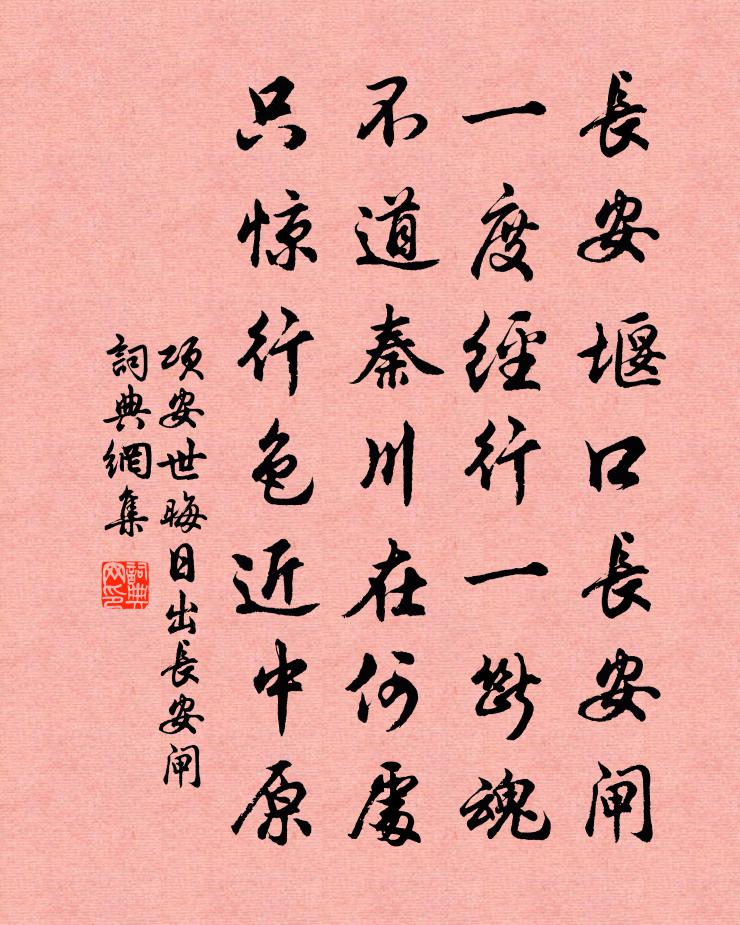 長安堰口長安闸
一度經行一斷魂
不道秦川在何處
只惊行色近中原
项安世晦日出長安闸
詞典網集
詞典网印